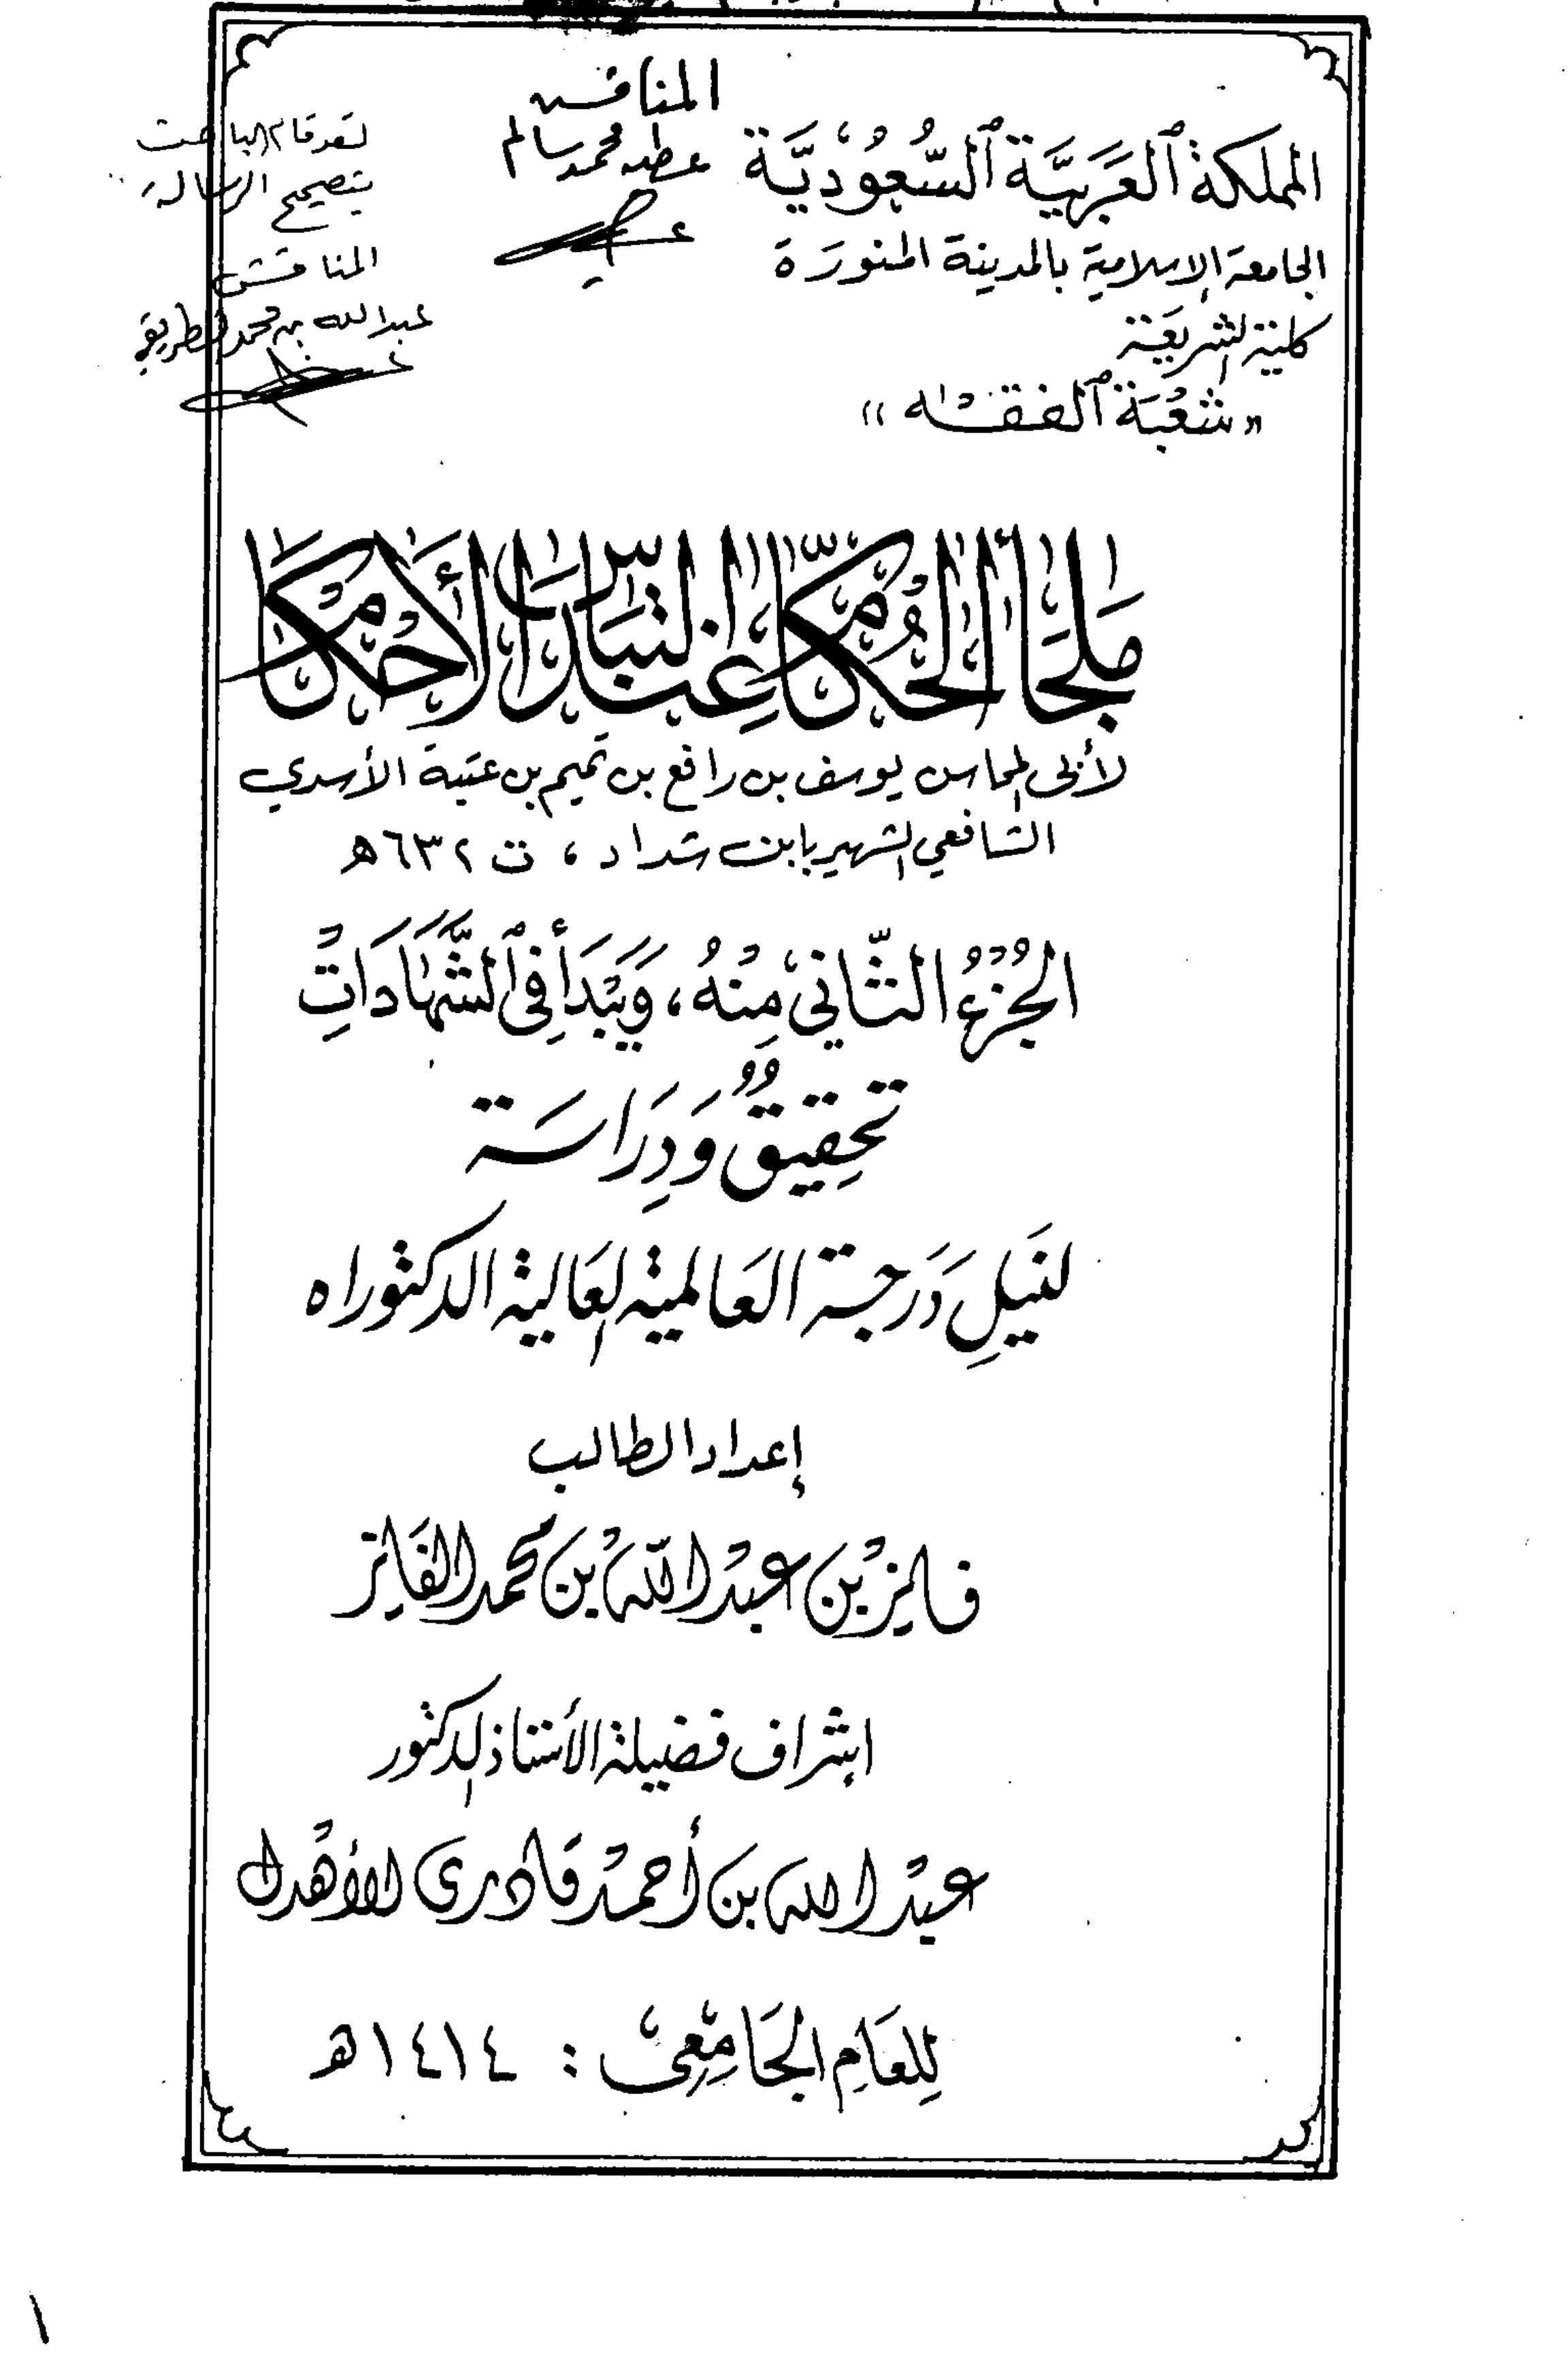 المملكة ٱلعَرَبيَّة ٱلسُّعُوْديَّة
الجامعة الإسلامية بالمدينة المنورة
كلية الشريعة
«شعْبَة ٱلفقْه»
المناقش
عطيه محمد سالم
لقد قام الباحث
بتصحيح الرسالة
المناقش
عبد الله بن محمد
مَلجَأ الحُكَّام عِندَ التبَاس الأحْكَام
لأبى المحاسن يوسف بن رافع بن تميم بن عتبة الأسدي
الشافعي الشهير بابن شداد ، ت ٦٣٢ه
الجُزْءُ الثَّانيْ مِنْهُ ، وَيَبْدَأ فِى ٱلشَّهَادَاتِ
تحِقِيقٌ وَدِرَاسَة
لنَيلِ دَرَجة العَالمية العَالية الدكتوراه
إعداد الطالب
فايز بْن عبدْ اللّه بْن محمد الفَايز
إشراف فضيلة الأستاذ الدكتور
عبدْ الله بن أحمدْ قادرى الأهْدل
لِلعَامِ الجَامِعيْ : ١٤١٤ه
١